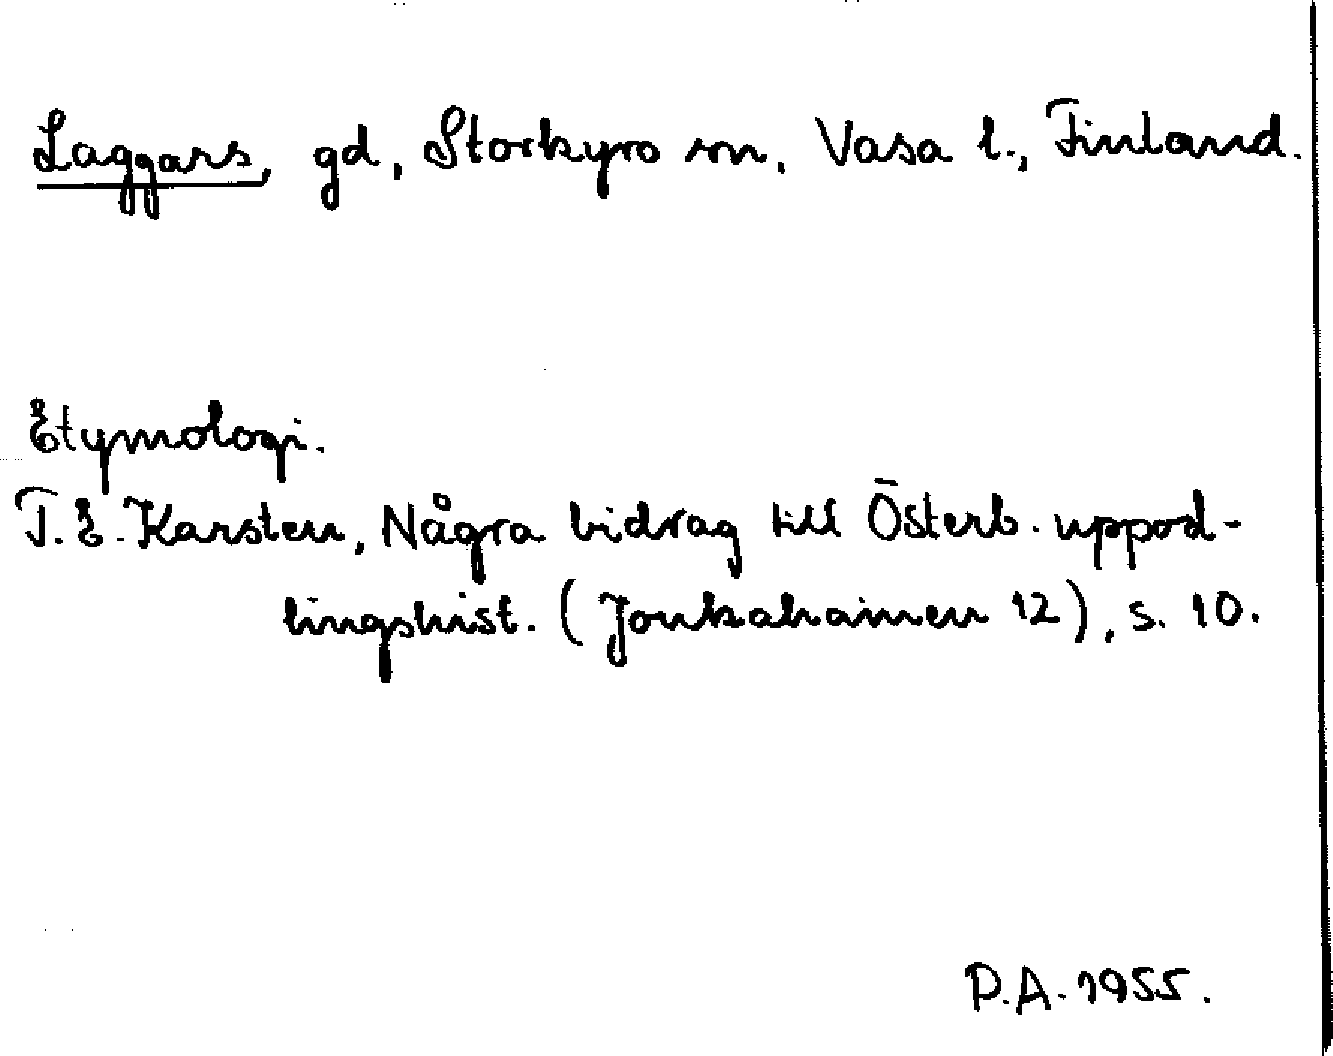 Laggars, gd, Storkyro sn, Vasa l., Finland.
Etymologi.
T. E. Karsten, Några bidrag till Österb. uppod-
lingshist. (Joukahainen 12), s. 10.
P.A. 1955.